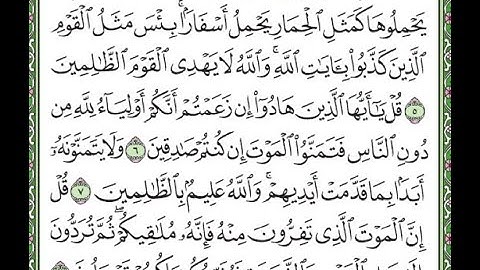 يَحْمِلُوهَا كَمَثَلِ ٱلْحِمَارِ يَحْمِلُ أَسْفَارَۢا ۚ بِئْسَ مَثَلُ ٱلْقَوْمِ
ٱلَّذِينَ كَذَّبُوا۟ بِـَٔايَٰتِ ٱللَّهِ ۚ وَٱللَّهُ لَا يَهْدِى ٱلْقَوْمَ ٱلظَّٰلِمِينَ
٥ قُلْ يَٰٓأَيُّهَا ٱلَّذِينَ هَادُوٓا۟ إِن زَعَمْتُمْ أَنَّكُمْ أَوْلِيَآءُ لِلَّهِ مِن
دُونِ ٱلنَّاسِ فَتَمَنَّوُا۟ ٱلْمَوْتَ إِن كُنتُمْ صَٰدِقِينَ ٦ وَلَا يَتَمَنَّوْنَهُۥٓ
أَبَدَۢا بِمَا قَدَّمَتْ أَيْدِيهِمْ ۚ وَٱللَّهُ عَلِيمُۢ بِٱلظَّٰلِمِينَ ٧ قُلْ
إِنَّ ٱلْمَوْتَ ٱلَّذِى تَفِرُّونَ مِنْهُ فَإِنَّهُۥ مُلَٰقِيكُمْ ۖ ثُمَّ تُرَدُّونَ